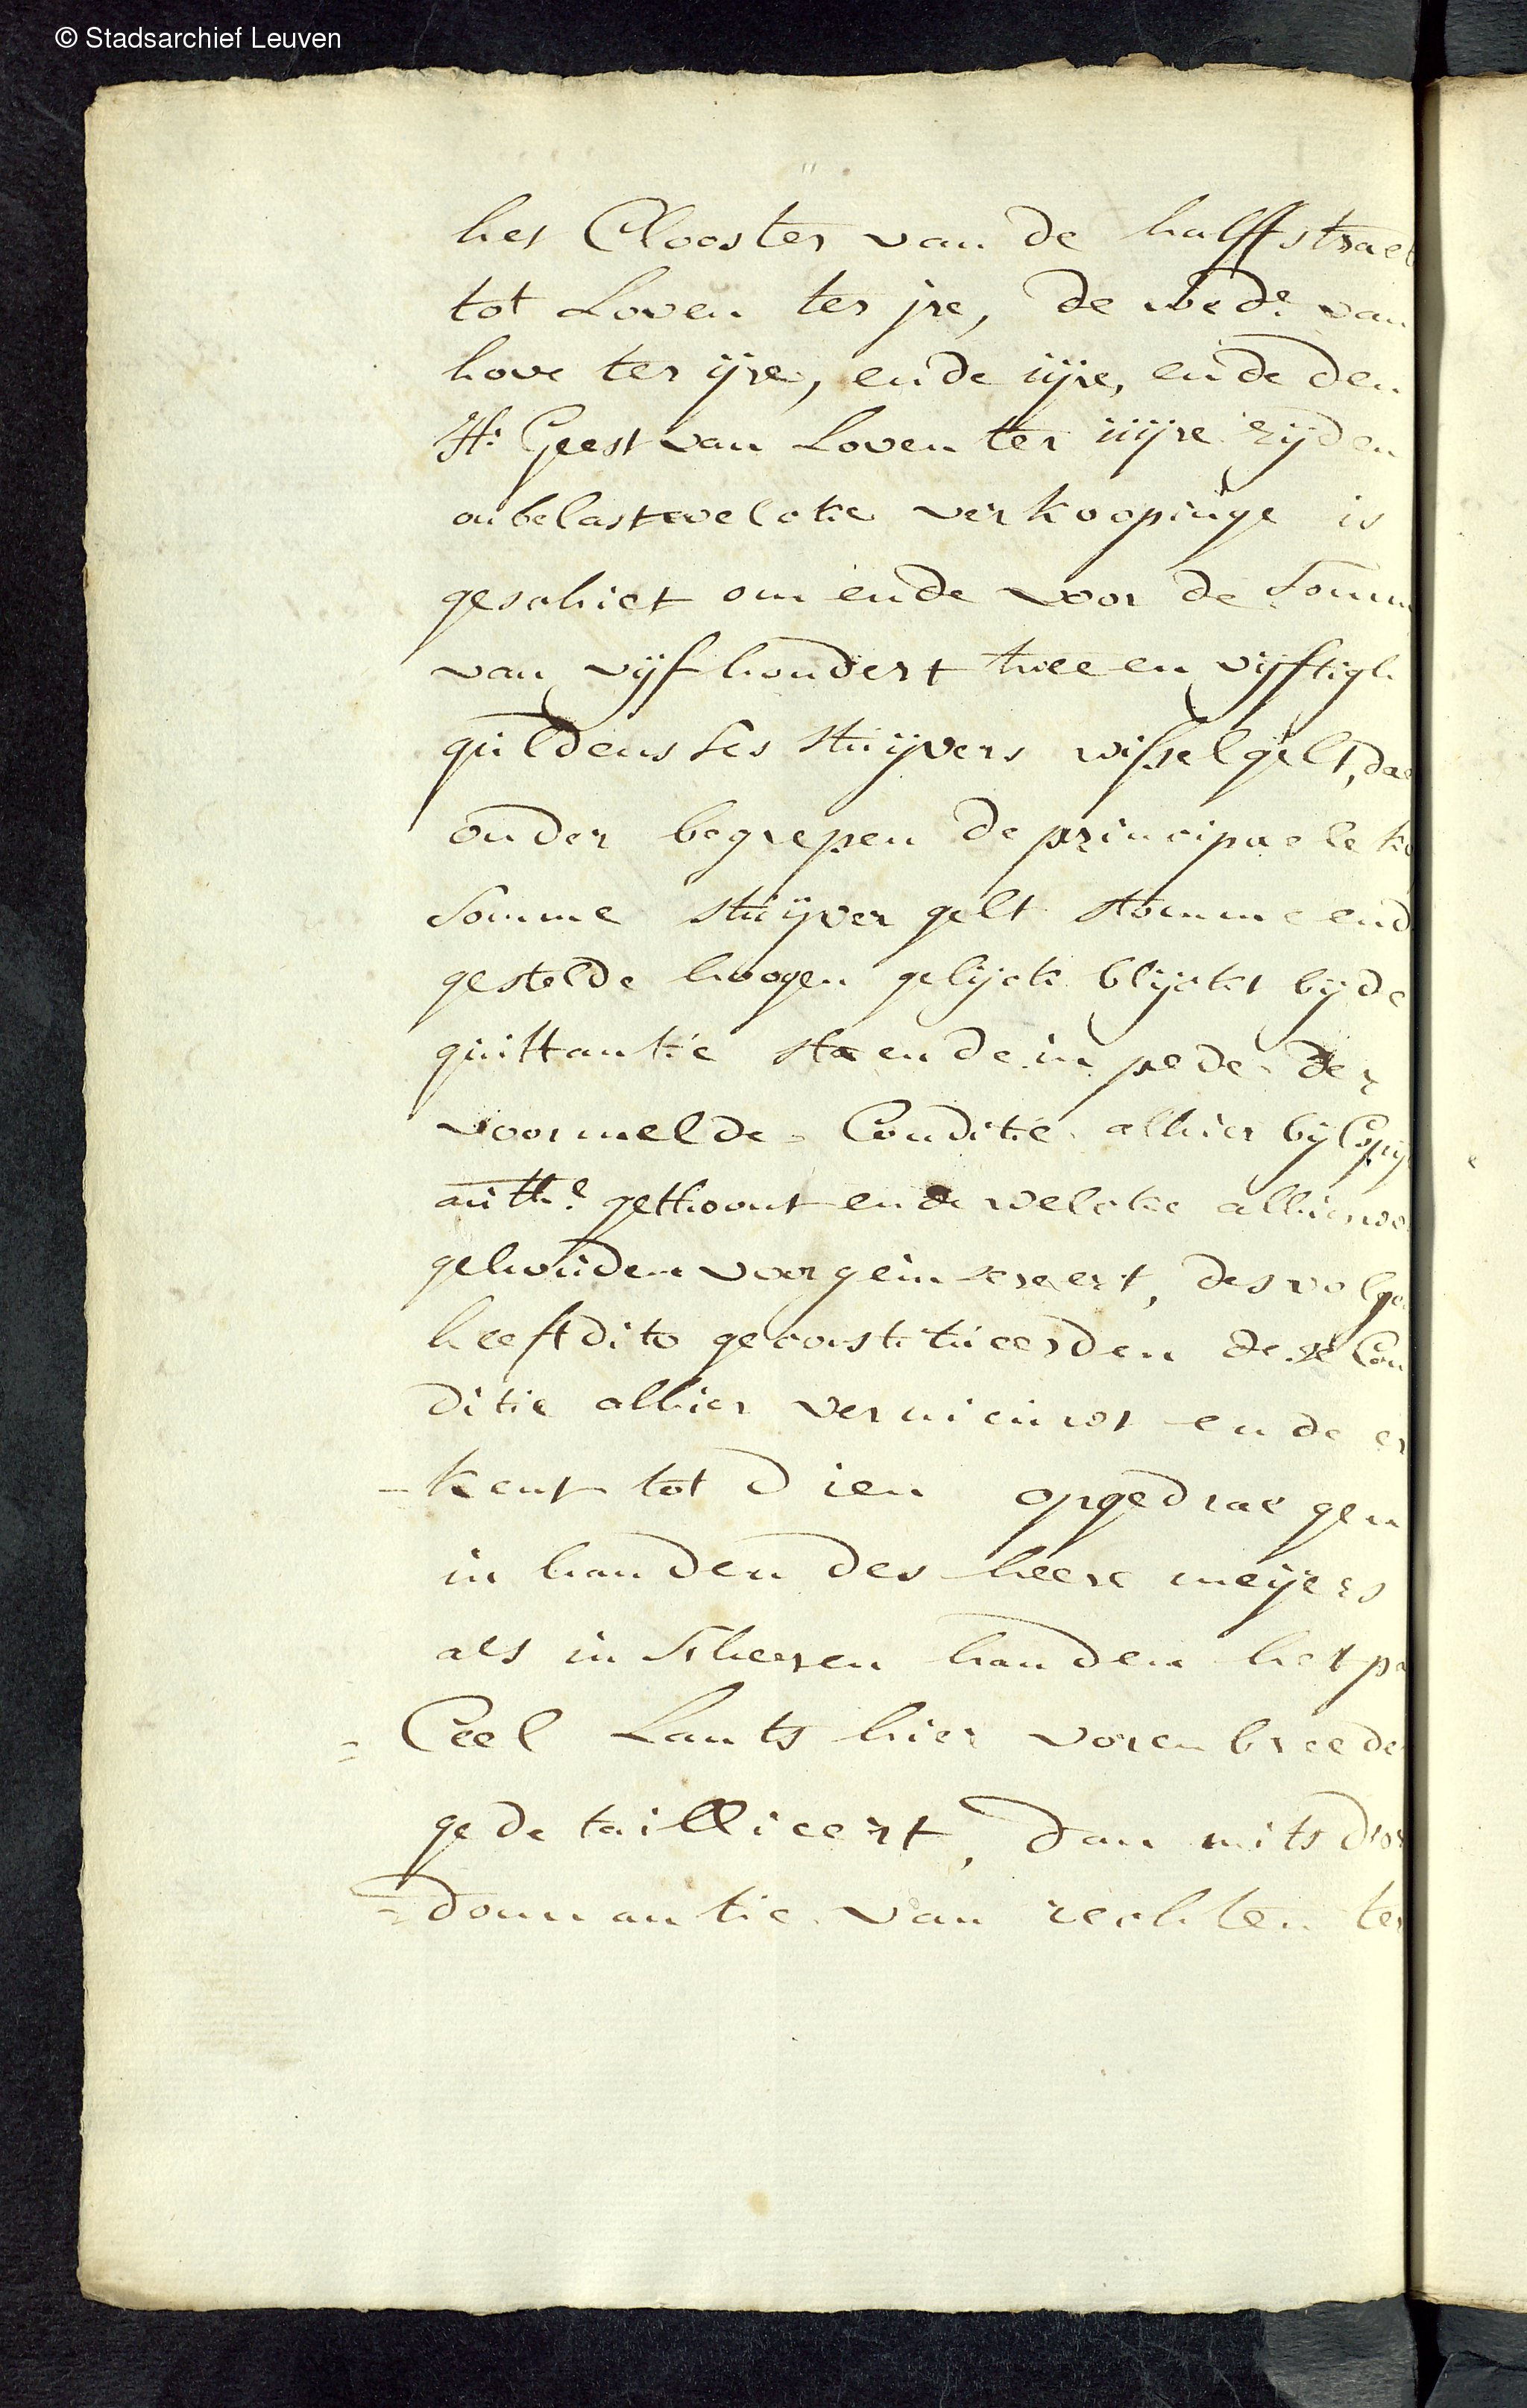 © Stadsarchief Leuven
het Clooster van de halffstraet
tot Loven ter jre, de wed.e van
hove ter ijre, ende iijre, ende den
H: Geest van Loven ter iiijre zijden
onbelast welcke verkoopinge is
geschiet om ende voor de Somm
van vijfhondert twee en vijftigh
guldens ses stuijvers wisselgelt, dae
onder begrepen de principaele ko
Somme stuijver gelt stomme end
gestelde hoogen gelijck blijckt bij de
quittantie staende in pede der
voormelde Conditie alhier bij Copij
auth.e gethoont ende welcke alhier wo
gehouden voor geinsereert, des volge
heeft dito geconstitueerden dese Con
ditie alhier vernieuwt ende er
- kent tot dien opgedraegen
in handen des heere meijers
als in Sheeren handen het pa
= Ceel Lants hier voren breeder
gedetaillieert, dan mits d'or
= donnantie van rechten ter